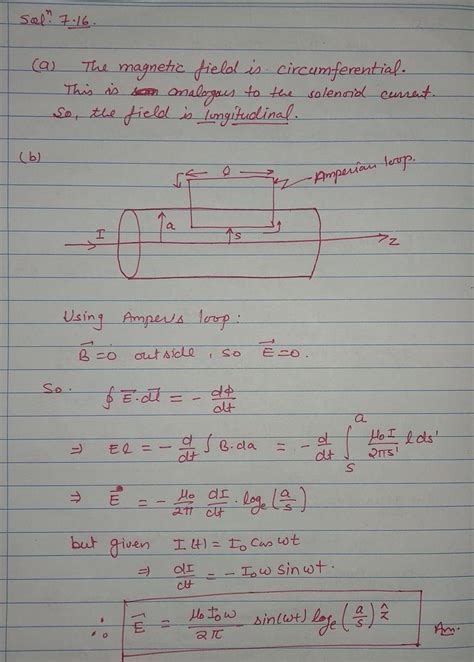 Solⁿ. 7.16.
(a) The magnetic field is circumferential.
This is analogous to the solenoid current.
So, the field is longitudinal.
(b)
l
Amperian loop.
I
a
s
z
Using Amper's loop:
B⃗ = 0 outside, so E⃗ = 0.
So. ∮ E⃗.dl⃗ = - dΦ/dt
⇒ El = - d/dt ∫ B.da = - d/dt ∫ₛᵃ μ₀I/2πs' l ds'
⇒ E⃗ = - μ₀/2π dI/dt . logₑ(a/s)
but given I(t) = I₀ Cos ωt
⇒ dI/dt = - I₀ω sin ωt.
∴ E⃗ = μ₀I₀ω/2π sin(ωt) logₑ(a/s) ẑ Ans.